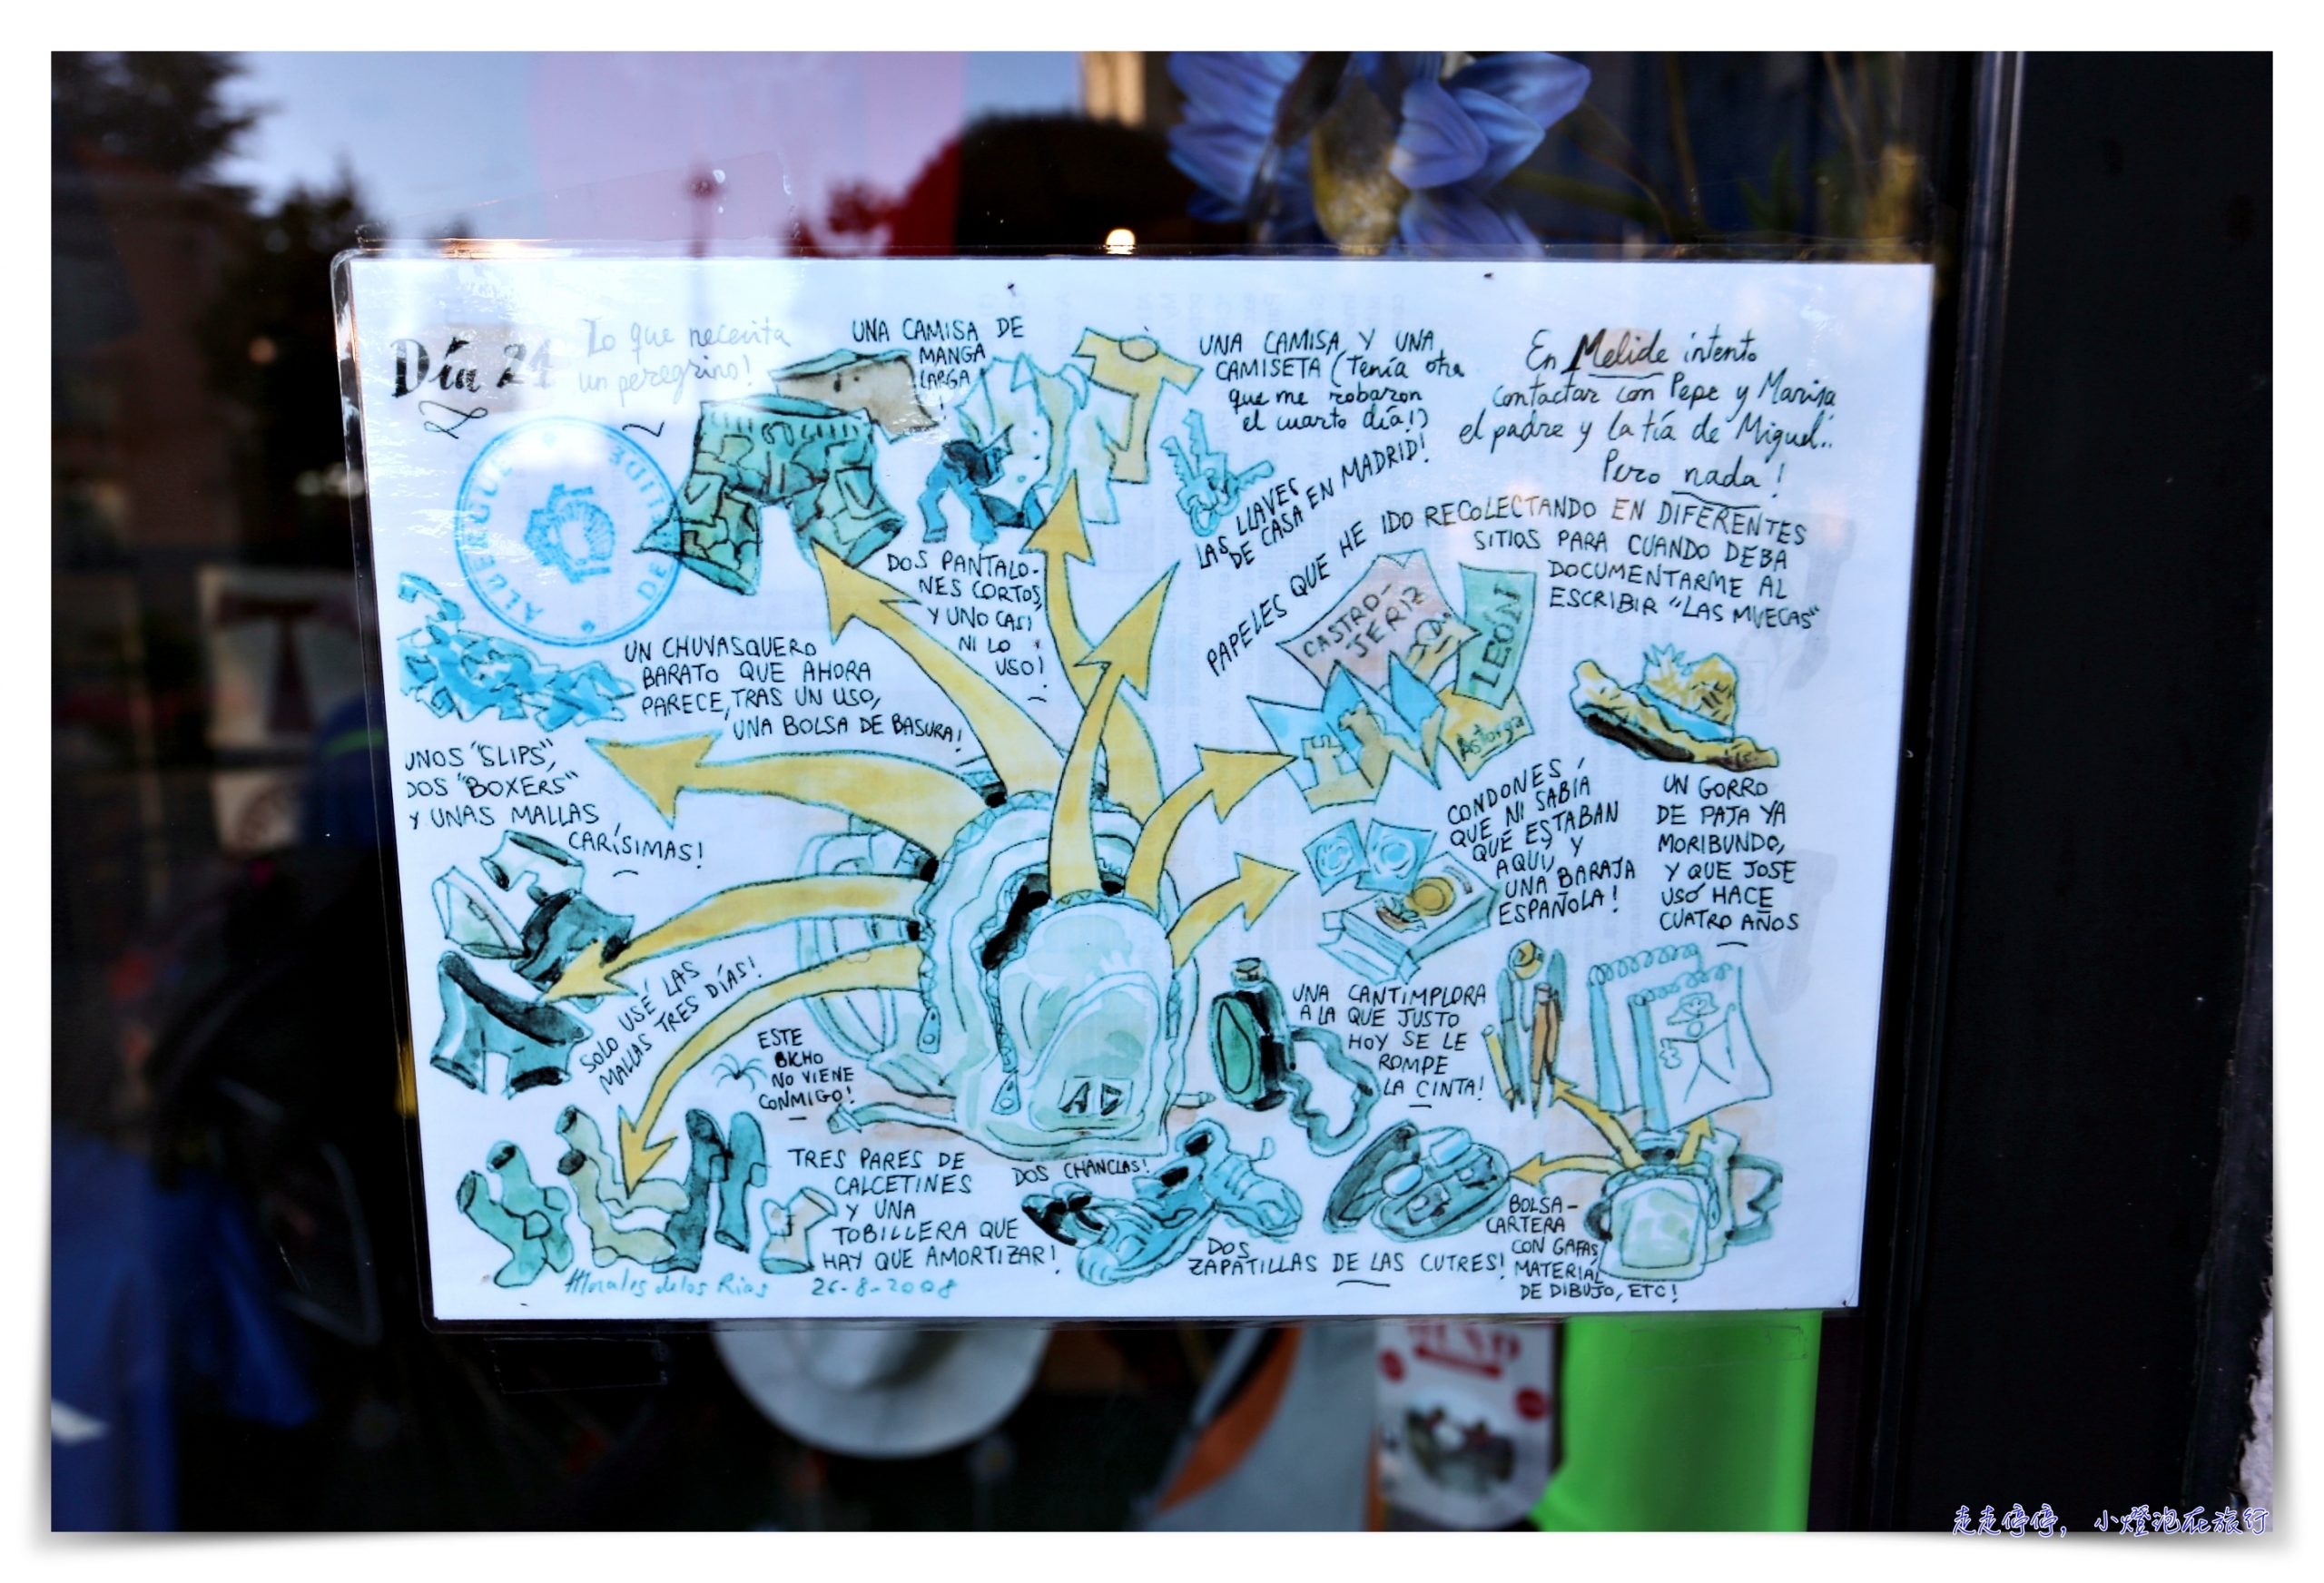 Día 21
Lo que necesita
un peregrino!
ALBERGUE
DE
UNA CAMISA DE
MANGA
LARGA!
UNA CAMISA Y UNA
CAMISETA (Tenía otra
que me robaron
el cuarto día!)
En Melide intento
contactar con Pepe y Marisa
el padre y la tía de Miguel..
Pero nada!
LAS LLAVES
DE CASA EN MADRID!
DOS PANTALO-
NES CORTOS,
Y UNO CASI
NI LO
USO!
PAPELES QUE HE IDO RECOLECTANDO EN DIFERENTES
SITIOS PARA CUANDO DEBA
DOCUMENTARME AL
ESCRIBIR "LAS MUECAS"
CASTRO-
JERIZ
LEÓN
Astorga
UN CHUVASQUERO
BARATO QUE AHORA
PARECE, TRAS UN USO,
UNA BOLSA DE BASURA!
UNOS "SLIPS",
DOS "BOXERS"
Y UNAS MALLAS
CARÍSIMAS!
CONDONES
QUE NI SABÍA
QUE ESTABAN
AQUÍ, Y
UNA BARAJA
ESPAÑOLA!
UN GORRO
DE PAJA YA
MORIBUNDO,
Y QUE JOSE
USÓ HACE
CUATRO AÑOS
SOLO USÉ LAS
MALLAS TRES DÍAS!
ESTE
BICHO
NO VIENE
CONMIGO!
UNA CANTIMPLORA
A LA QUE JUSTO
HOY SE LE
ROMPE
LA CINTA!
TRES PARES DE
CALCETINES
Y UNA
TOBILLERA QUE
HAY QUE AMORTIZAR!
DOS CHANCLAS!
DOS
ZAPATILLAS DE LAS CUTRES!
BOLSA-
CARTERA
CON GAFAS,
MATERIAL
DE DIBUJO, ETC!
Morales de los Ríos 26-8-2008
走走停停，小燈泡在旅行